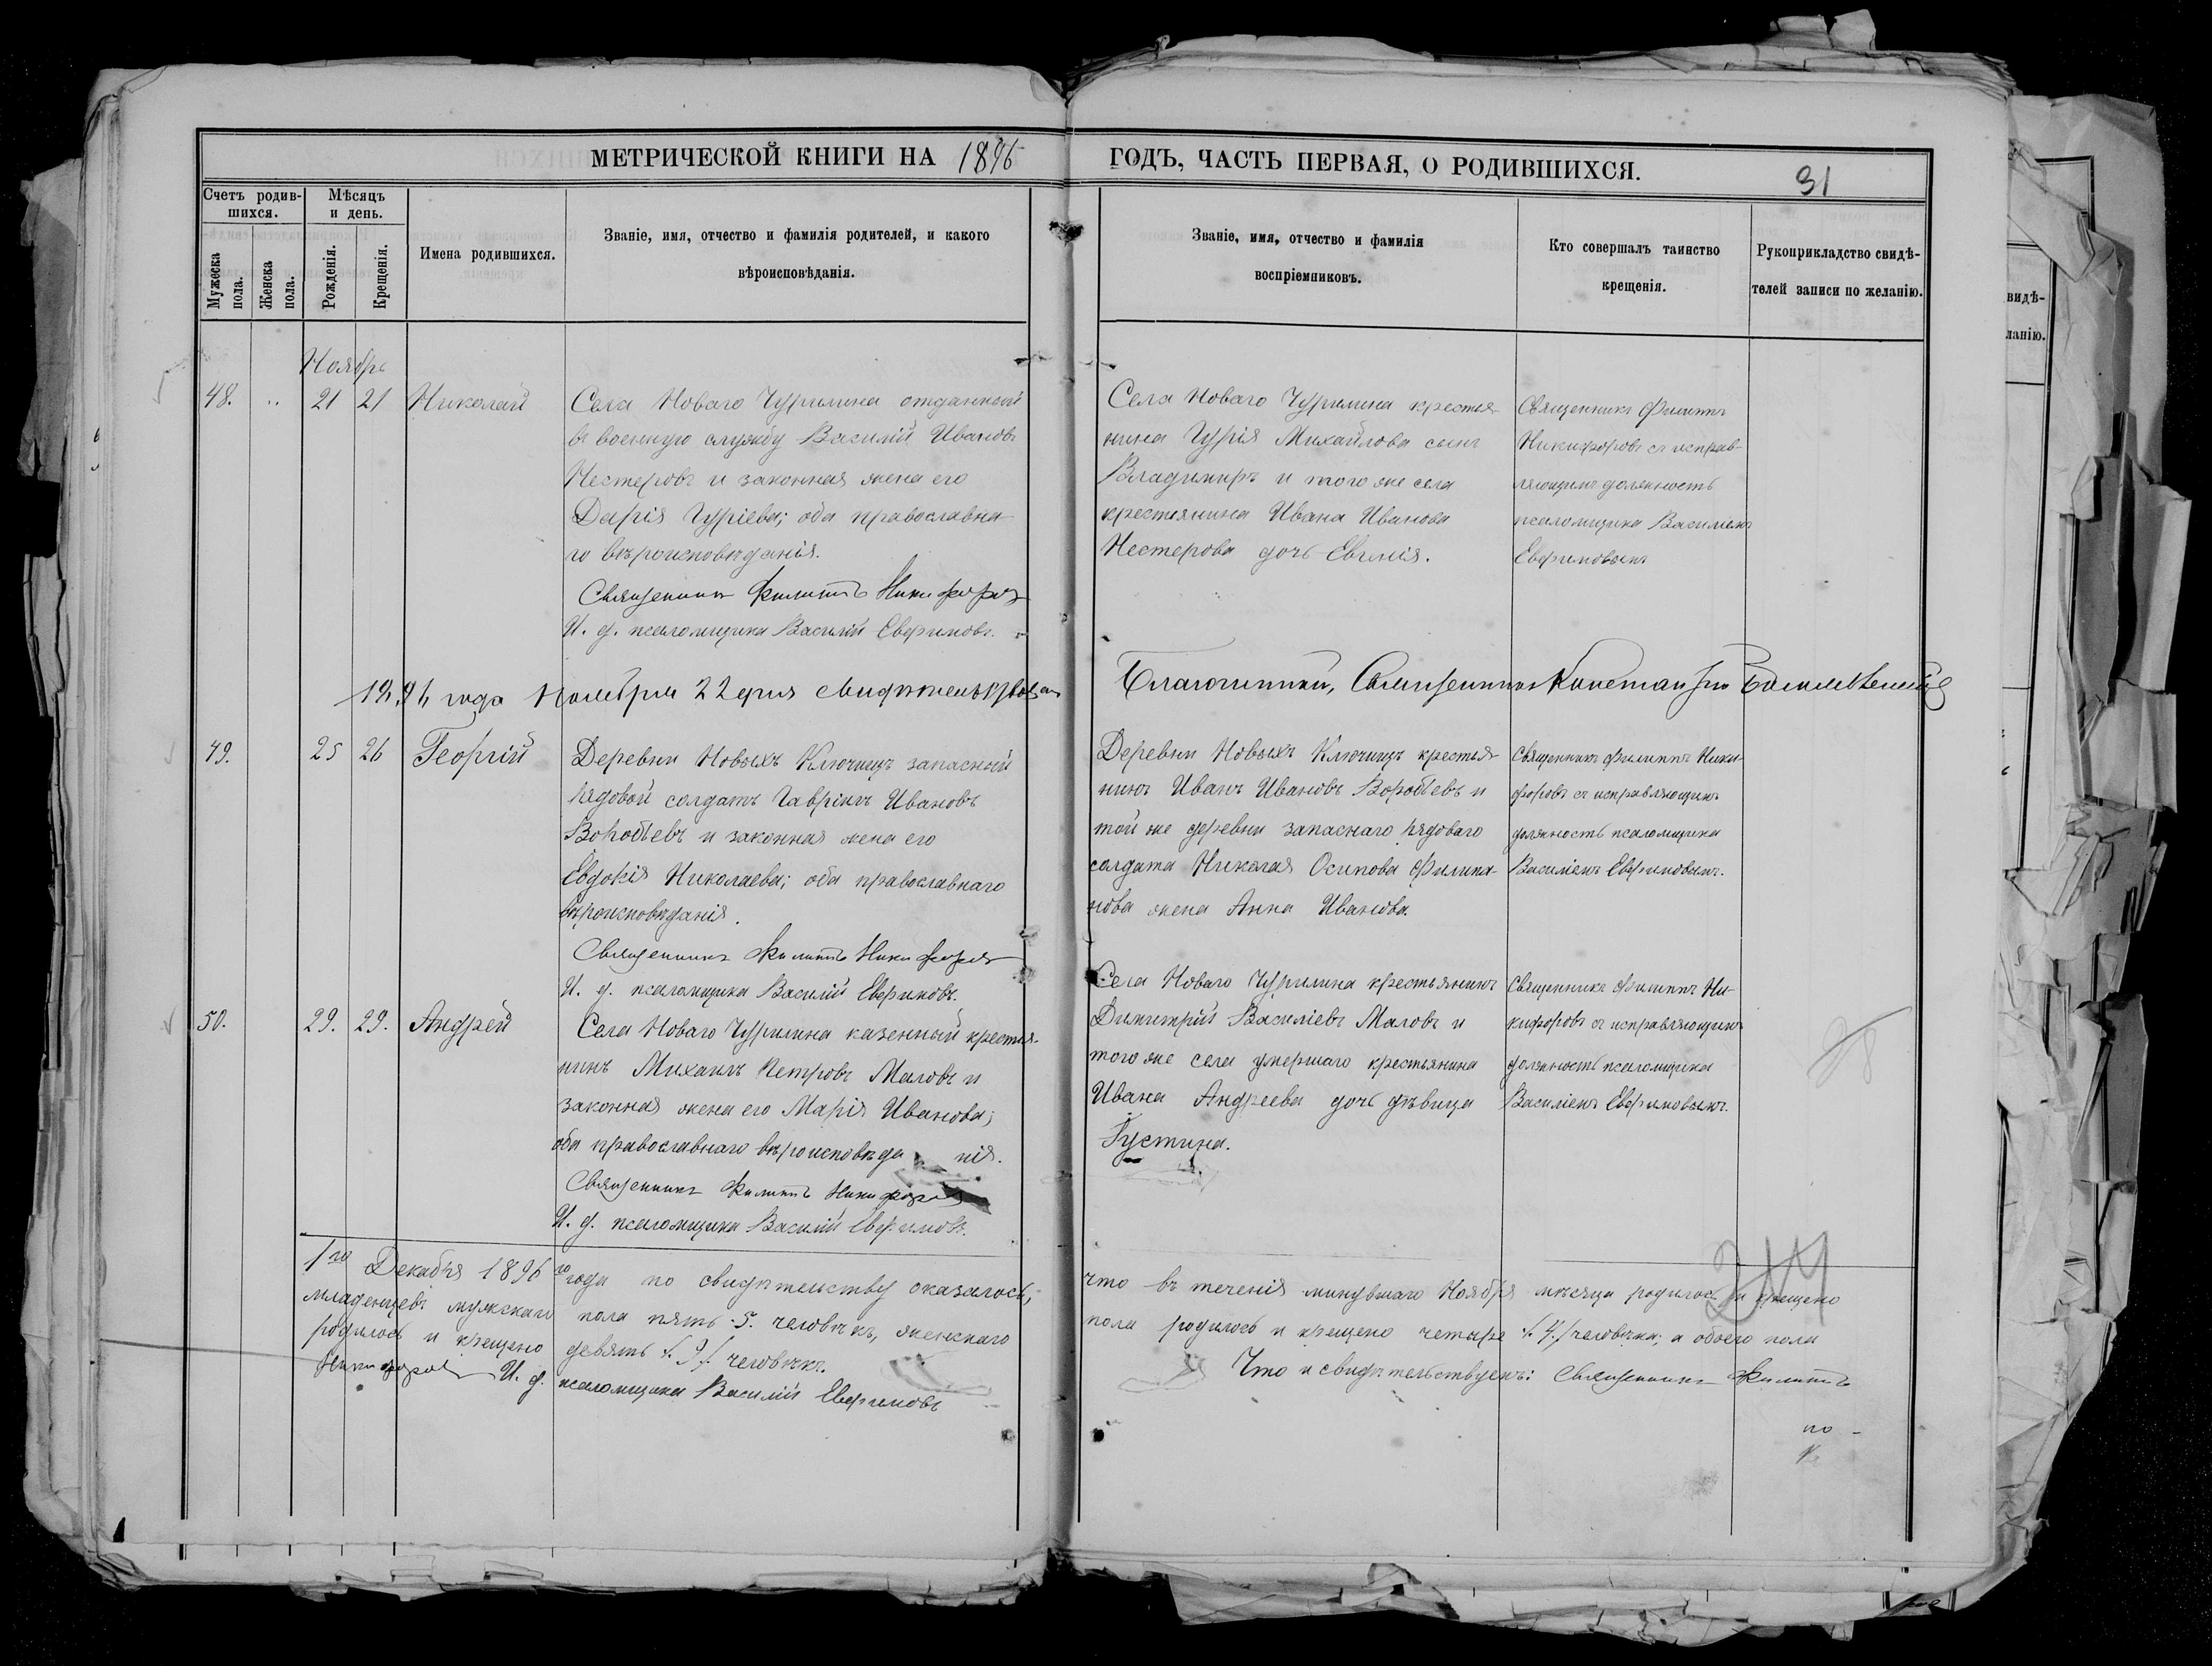 МЕТРИЧЕСКОЙ КНИГИ НА 1896
ГОДЪ, ЧАСТЬ ПЕРВАЯ, О РОДИВШИХСЯ.
31
Счетъ родив-
шихся.
Мѣсяцъ
и день.
Мужеска
пола.
Женска
пола.
Рожденія.
Крещенія.
Имена родившихся.
Званіе, имя, отчество и фамилія родителей, и какого
вѣроисповѣданія.
Званіе, имя, отчество и фамилія
воспріемниковъ.
Кто совершалъ таинство
крещенія.
Рукоприкладство свидѣ-
телей записи по желанію.
видѣ-
ланію.
Ноябрь
48. 21 21 Николай
Села Новаго Чурилина отданный
въ военную службу Василій Ивановъ
Нестеровъ и законная жена его
Дарія Гуріева; оба православна-
го вѣроисповѣданія.
Священникъ Филиппъ Никифоровъ
И. д. псаломщика Василій Евфимовъ.
Села Новаго Чурилина крестья-
нина Гурія Михайлова сынъ
Владимиръ и того же села
крестьянина Ивана Иванова
Нестерова дочь Евгенія.
Священникъ Филиппъ
Никифоровъ съ исправ-
ляющимъ должность
псаломщика Василіемъ
Евфимовымъ
1896 года Ноября 22 дня свидѣтельствовалъ
Благочинный, Священникъ Константинъ
49. 25 26 Георгій
Деревни Новыхъ Ключищъ запасный
рядовой солдатъ Гавріилъ Ивановъ
Воробьевъ и законная жена его
Евдокія Николаева; оба православнаго
вѣроисповѣданія.
Священникъ Филиппъ Никифоровъ
И. д. псаломщика Василій Евфимовъ.
Деревни Новыхъ Ключищъ крестья-
нинъ Иванъ Ивановъ Воробьевъ и
той же деревни запаснаго рядоваго
солдата Николая Осипова Филипа-
нова жена Анна Иванова.
Священникъ Филиппъ Ники-
форовъ съ исправляющимъ
должность псаломщика
Василіемъ Евфимовымъ.
50. 29. 29. Андрей
Села Новаго Чурилина казенный крестья-
нинъ Михаилъ Петровъ Маловъ и
законная жена его Марія Иванова;
оба православнаго вѣроисповѣданія.
Священникъ Филиппъ Никифоровъ
И. д. псаломщика Василій Евфимовъ.
Села Новаго Чурилина крестьянинъ
Димитрій Василіевъ Маловъ и
того же села умершаго крестьянина
Ивана Андреева дочь дѣвица
Іустина.
Священникъ Филиппъ Ни-
кифоровъ съ исправляющимъ
должность псаломщика
Василіемъ Евфимовымъ.
1го Декабря 1896 го года по свидѣтельству оказалось, что въ теченія минувшаго Ноября мѣсяца родилось и крещено
младенцевъ мужскаго пола пять 5. человѣкъ, женскаго пола родилось и крещено четыре /.4./ человѣка; а обоего пола
родилось и крещено девять /.9./ человѣкъ. Что и свидѣтельствуемъ: Священникъ Филиппъ
Никифоровъ И. д. псаломщика Василій Евфимовъ